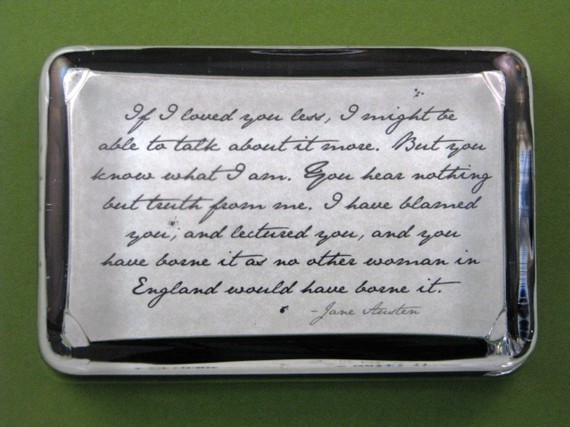 If I loved you less, I might be
able to talk about it more. But you
know what I am. You hear nothing
but truth from me. I have blamed
you, and lectured you, and you
have borne it as no other woman in
England would have borne it.
-Jane Austen